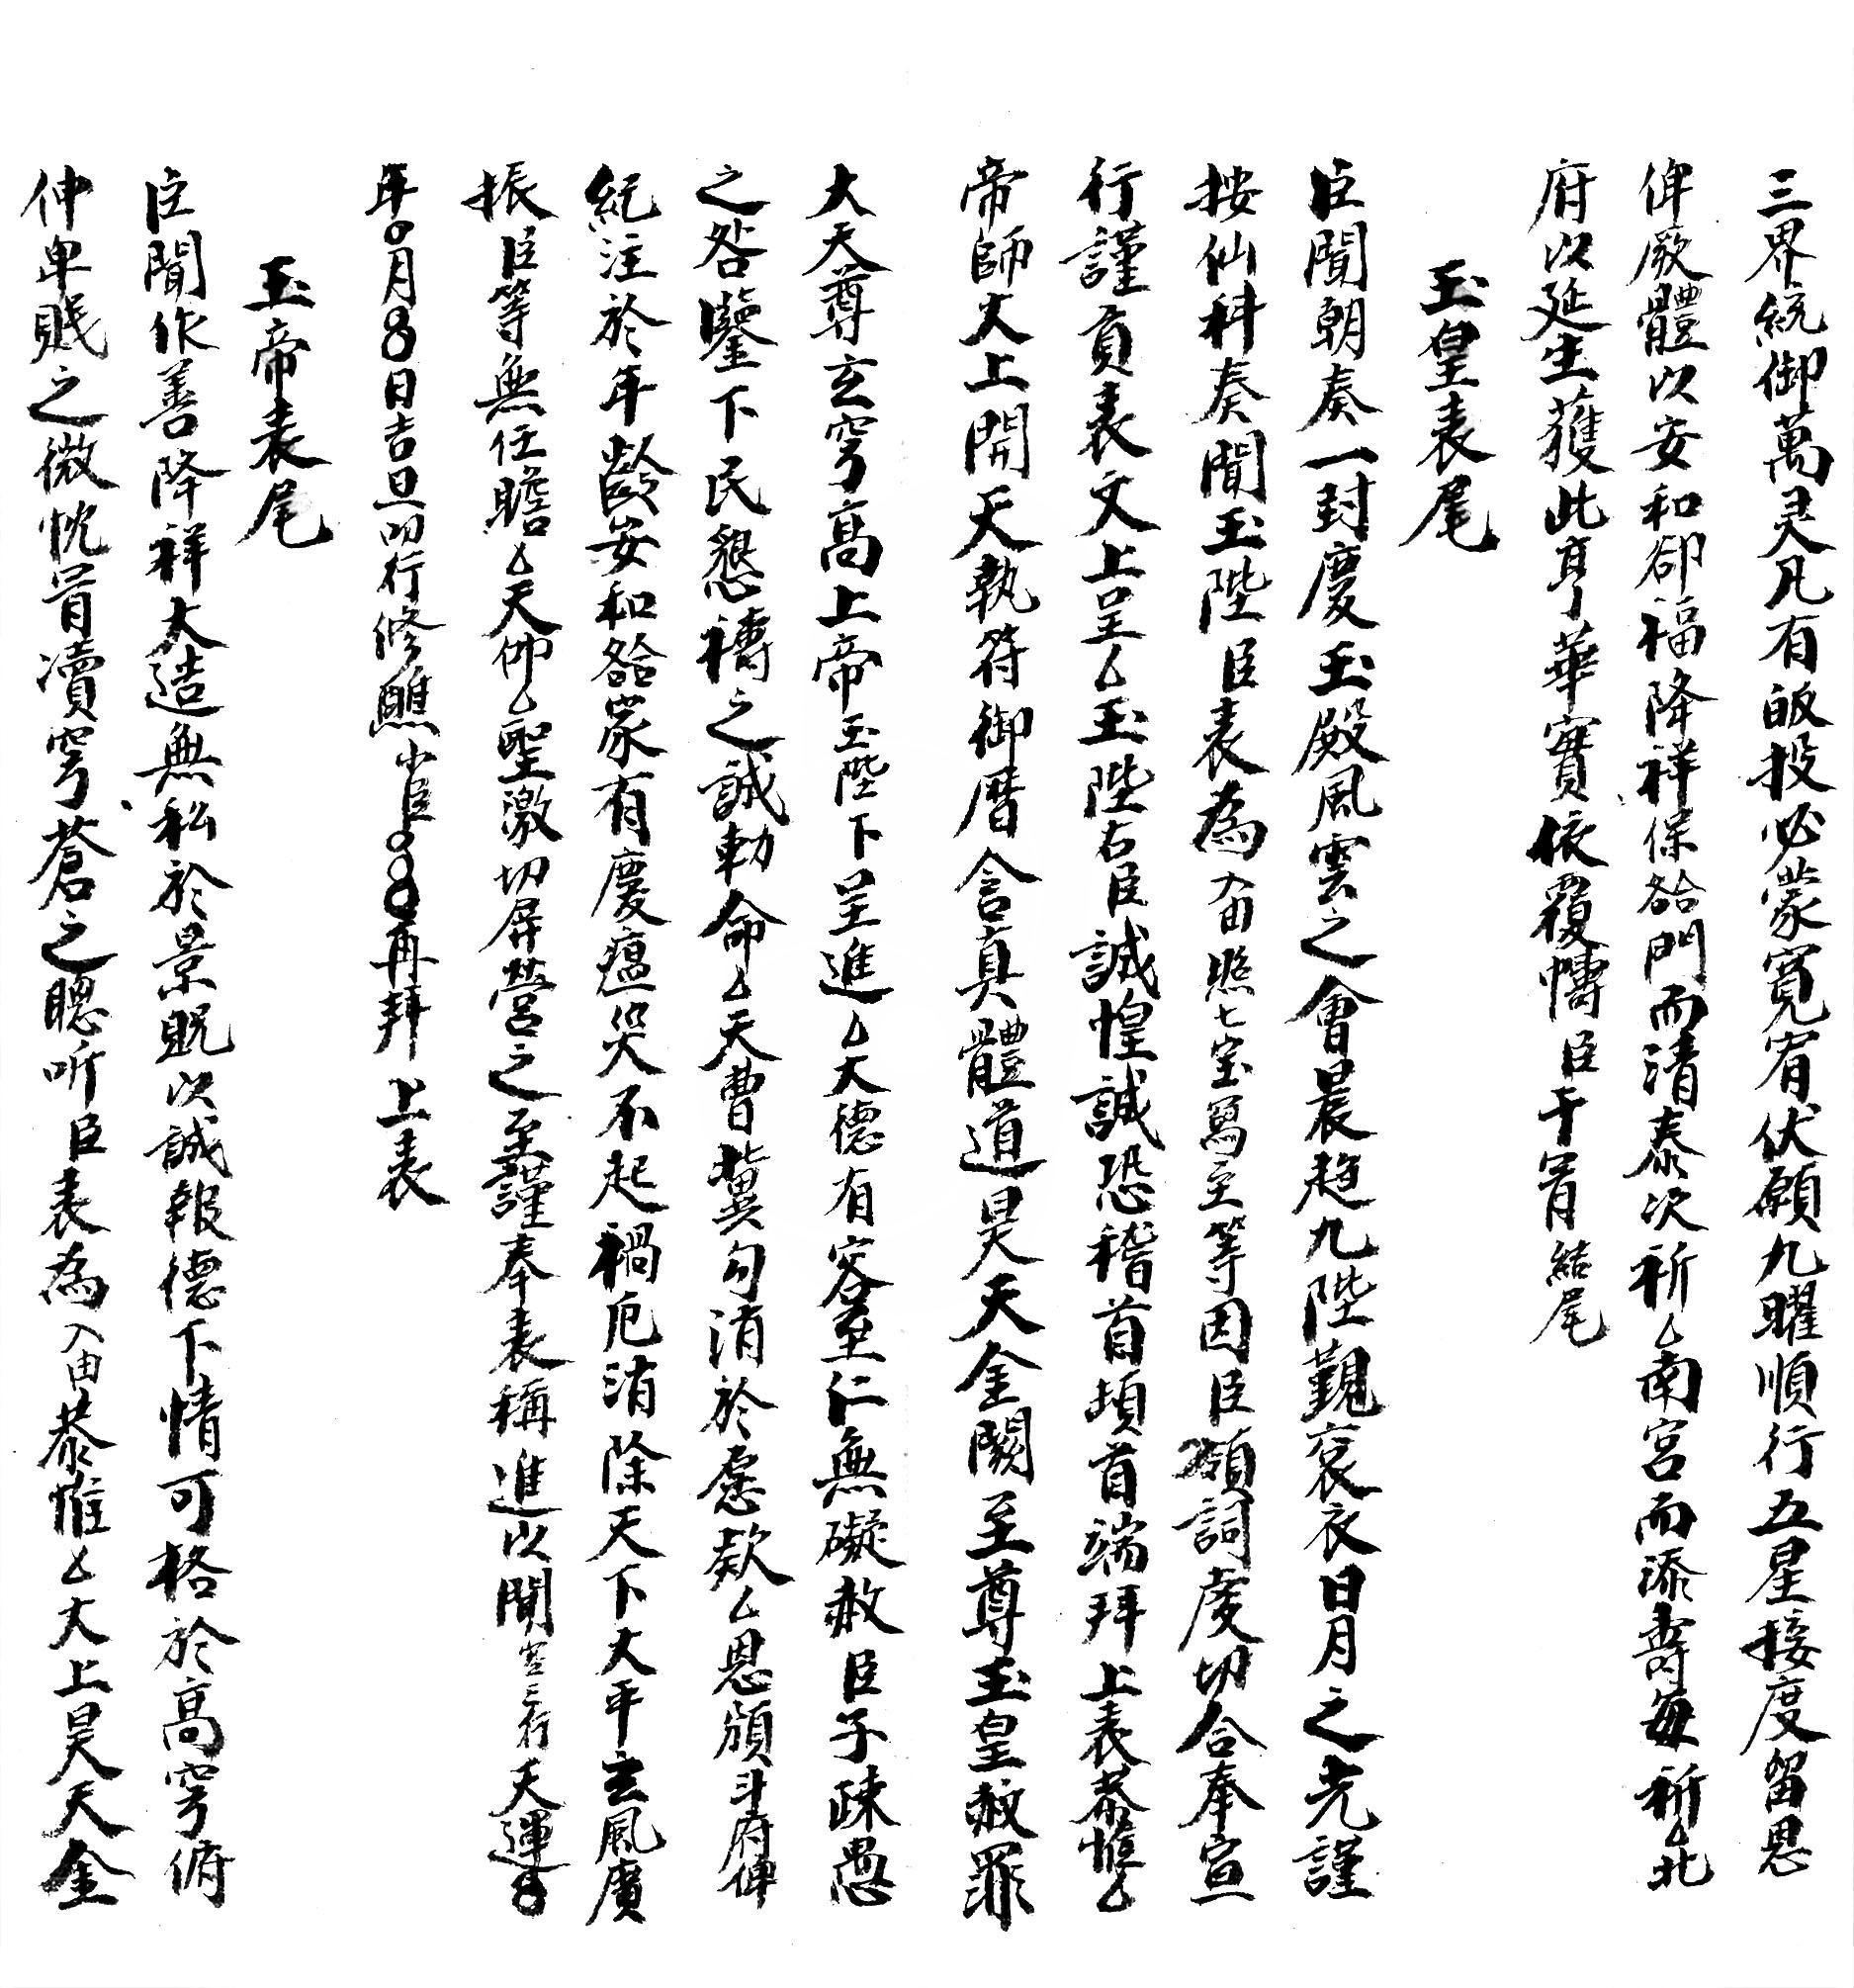 三界統御萬灵凡有皈投必蒙寬宥伏願九曜順行五星接度留恩
俾厥體以安和郤福降祥保詥門而清泰次祈厶南宮而添壽每祈厶北
府以延生獲此亨華實依覆幬臣干冒結尾
玉皇表尾
臣聞朝奏一封慶玉殿風雲之會晨趨九陛覲袞衣日月之光謹
按仙科奏聞玉陛臣表為入由照七寶寫至等因臣領詞虔切合奉宣
行謹賫表文上呈厶玉陛右臣誠惶誠恐稽首頓首端拜上表恭惟厶
帝師太上開天執符御曆含真體道昊天金闕至尊玉皇赦罪
大天尊玄穹高上帝玉陛下呈進厶大德有容至仁無礙赦臣子疎愚
之咎鑒下民懇禱之誠勅命厶天曹冀勾消於愆欵厶恩頒斗府俾
紀注於年齡安和詥家有慶瘟災不起禍厄消除天下太平玄風廣
振臣等無任瞻厶天仰厶聖激切屏營之至謹奉表稱進以聞空三行天運〇
年〇月〇日吉旦叩行修醮小臣〇〇〇再拜上表
玉帝表尾
臣聞作善降祥大造無私於景貺次誠報德下情可格於高穹俯
伸卑賤之微忱冒瀆穹蒼之聰听臣表為入由恭惟厶太上昊天金